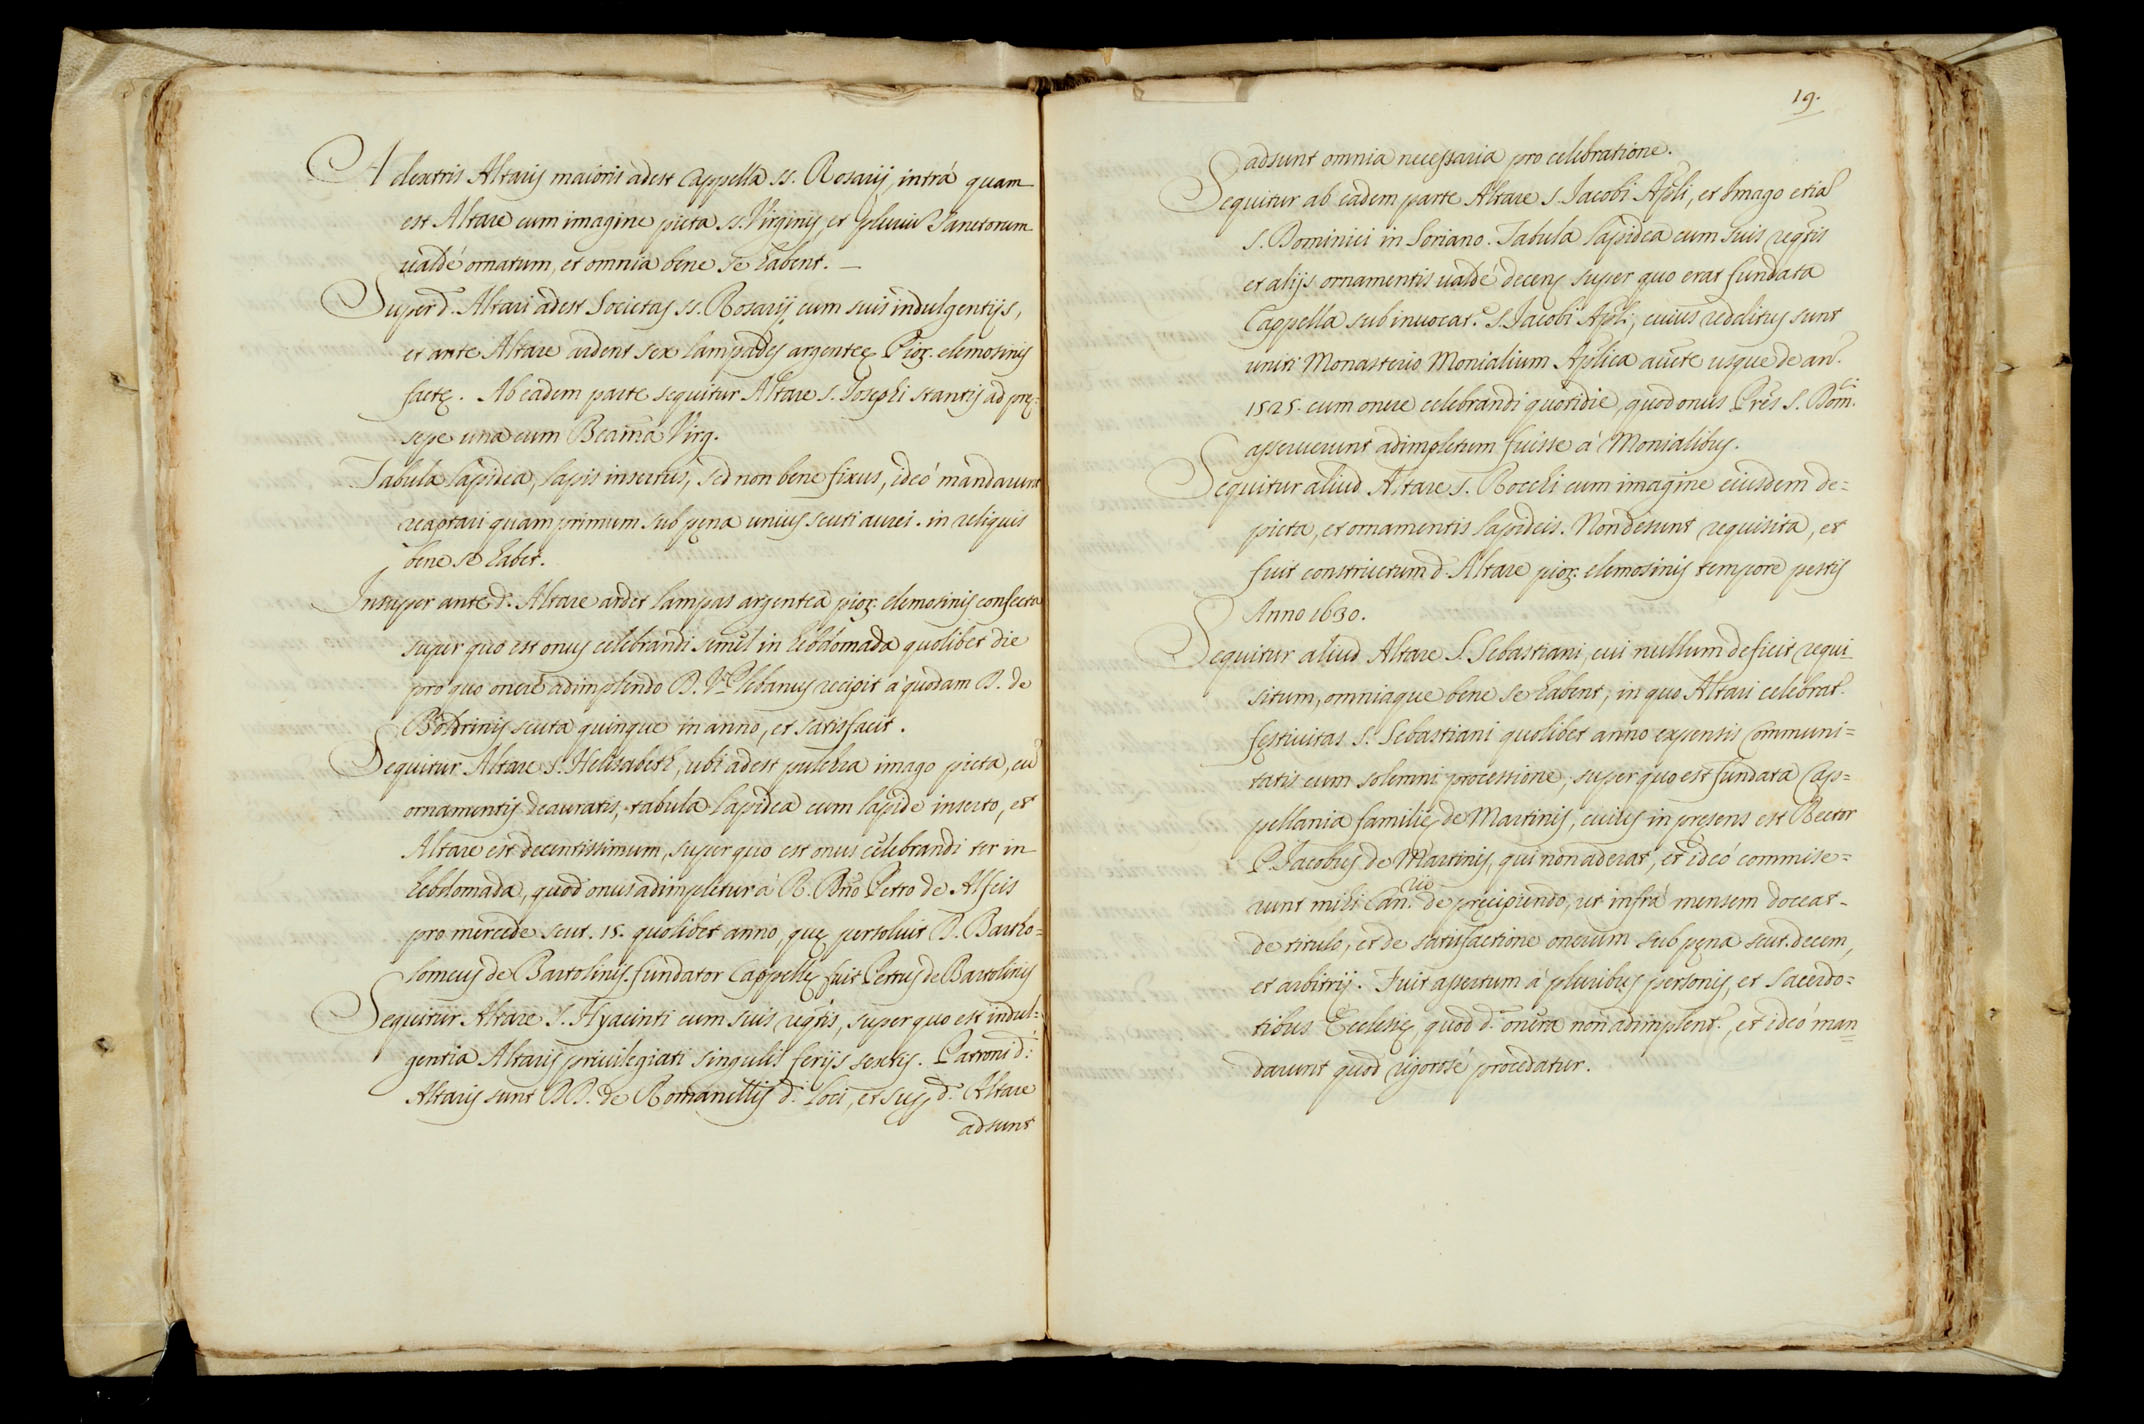 A dextris Altaris maioris adest Cappella SS. Rosarij, intrà quam
est Altare cum imagine picta SS. Virginis, et plurium Sanctorum
ualdè ornatum, et omnia bene se habent. —
Super d. Altari adest Societas SS. Rosarij cum suis indulgentijs,
et ante Altare ardent sex lampades argenteę Pior. elemosinis
factę. Ab eadem parte sequitur Altare S. Josephi stantis ad prę-
sepe una cum Beatma Virg.
Tabula lapidea, lapis insertus, sed non bene fixus, ideò mandarunt
reaptari quam primum sub pęna unius scuti aurei. in reliquis
bene se habet.
Insuper ante d. Altare ardet lampas argentea pior. elemosinis confecta
super quo est onus celebrandi semel in hebdomada quolibet die
pro quo onere adimplendo R. Plebanus recipit à quodam D. de
Boldrinis scuta quinque in anno, et satisfacit.
Sequitur Altare S. Helisabeth, ubi adest pulchra imago picta, cu
ornamentis deauratis, tabula lapidea cum lapide inserto, et
Altare est decentissimum, super quo est onus celebrandi ter in
hebdomada, quod onus adimpletur à R. Dno Petro de Alfeis
pro mercede scut. 15. quolibet anno, quę persoluit D. Bartho-
lomeus de Bartolinis. fundator Cappellę fuit Petrus de Bartolinis
Sequitur Altare S. Hyacinti cum suis reqtis, super quo est indul-
gentia Altaris priuilegiati singulis ferijs sextis. Patroni d.
Altaris sunt DD. de Romanellis d. loci, et sup. d. Altare
adsunt
19.
adsunt omnia necessaria pro celebratione.
Sequitur ab eadem parte Altare S. Jacobi Apli, et Imago etia
S. Dominici in Soriano. Tabula lapidea cum suis reqtis
et alijs ornamentis ualdè decens super quo erat fundata
Cappella sub inuocat. S. Jacobi Apli, cuius redditus sunt
uniti Monasterio Monialium Aplica aucte usque de an.
1525. cum onere celebrandi quotidie, quod onus Pres S. Dom.ci
asseruerunt adimpletum fuisse à Monialibus.
Sequitur aliud Altare S. Rocchi cum imagine eiusdem de=
picta, et ornamentis lapideis. Non desunt requisita, et
fuit constructum d. Altare pior. elemosinis tempore pestis
Anno 1630.
Sequitur aliud Altare S. Sebastiani, cui nullum deficit requi-
situm, omniaque bene se habent, in quo Altari celebrat.
festiuitas S. Sebastiani quolibet anno expensis Communi=
tatis cum solemni processione, super quo est fundata Cap=
pellania familię de Martinis, cuius in pręsens est Rector
P. Jacobus de Martinis, qui non aderat, et ideò commise=
runt mihi Can.rio de pręcipiendo, ut infrà mensem doceat
de titulo, et de satisfactione onerum sub pęna scut. decem,
et arbitrij. Fuit assertum à pluribus personis, et Sacerdo=
tibus Ecclesię, quod d. onera non adimplent., et ideò man=
darunt quod rigorosè procedatur.